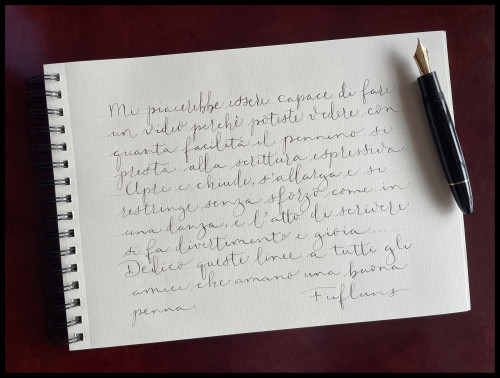 Mi piacerebbe essere capace di fare
un video perchè potiste vedere con
quanta facilità il pennino si
presta alla scrittura espressiva.
Apre e chiude, s'allarga e si
restringe senza sforzo come in
una danza, e l'atto di scrivere
si fa divertimento e gioia...
Dedico queste linee a tutti gli
amici che amano una buona
penna
Fufluns